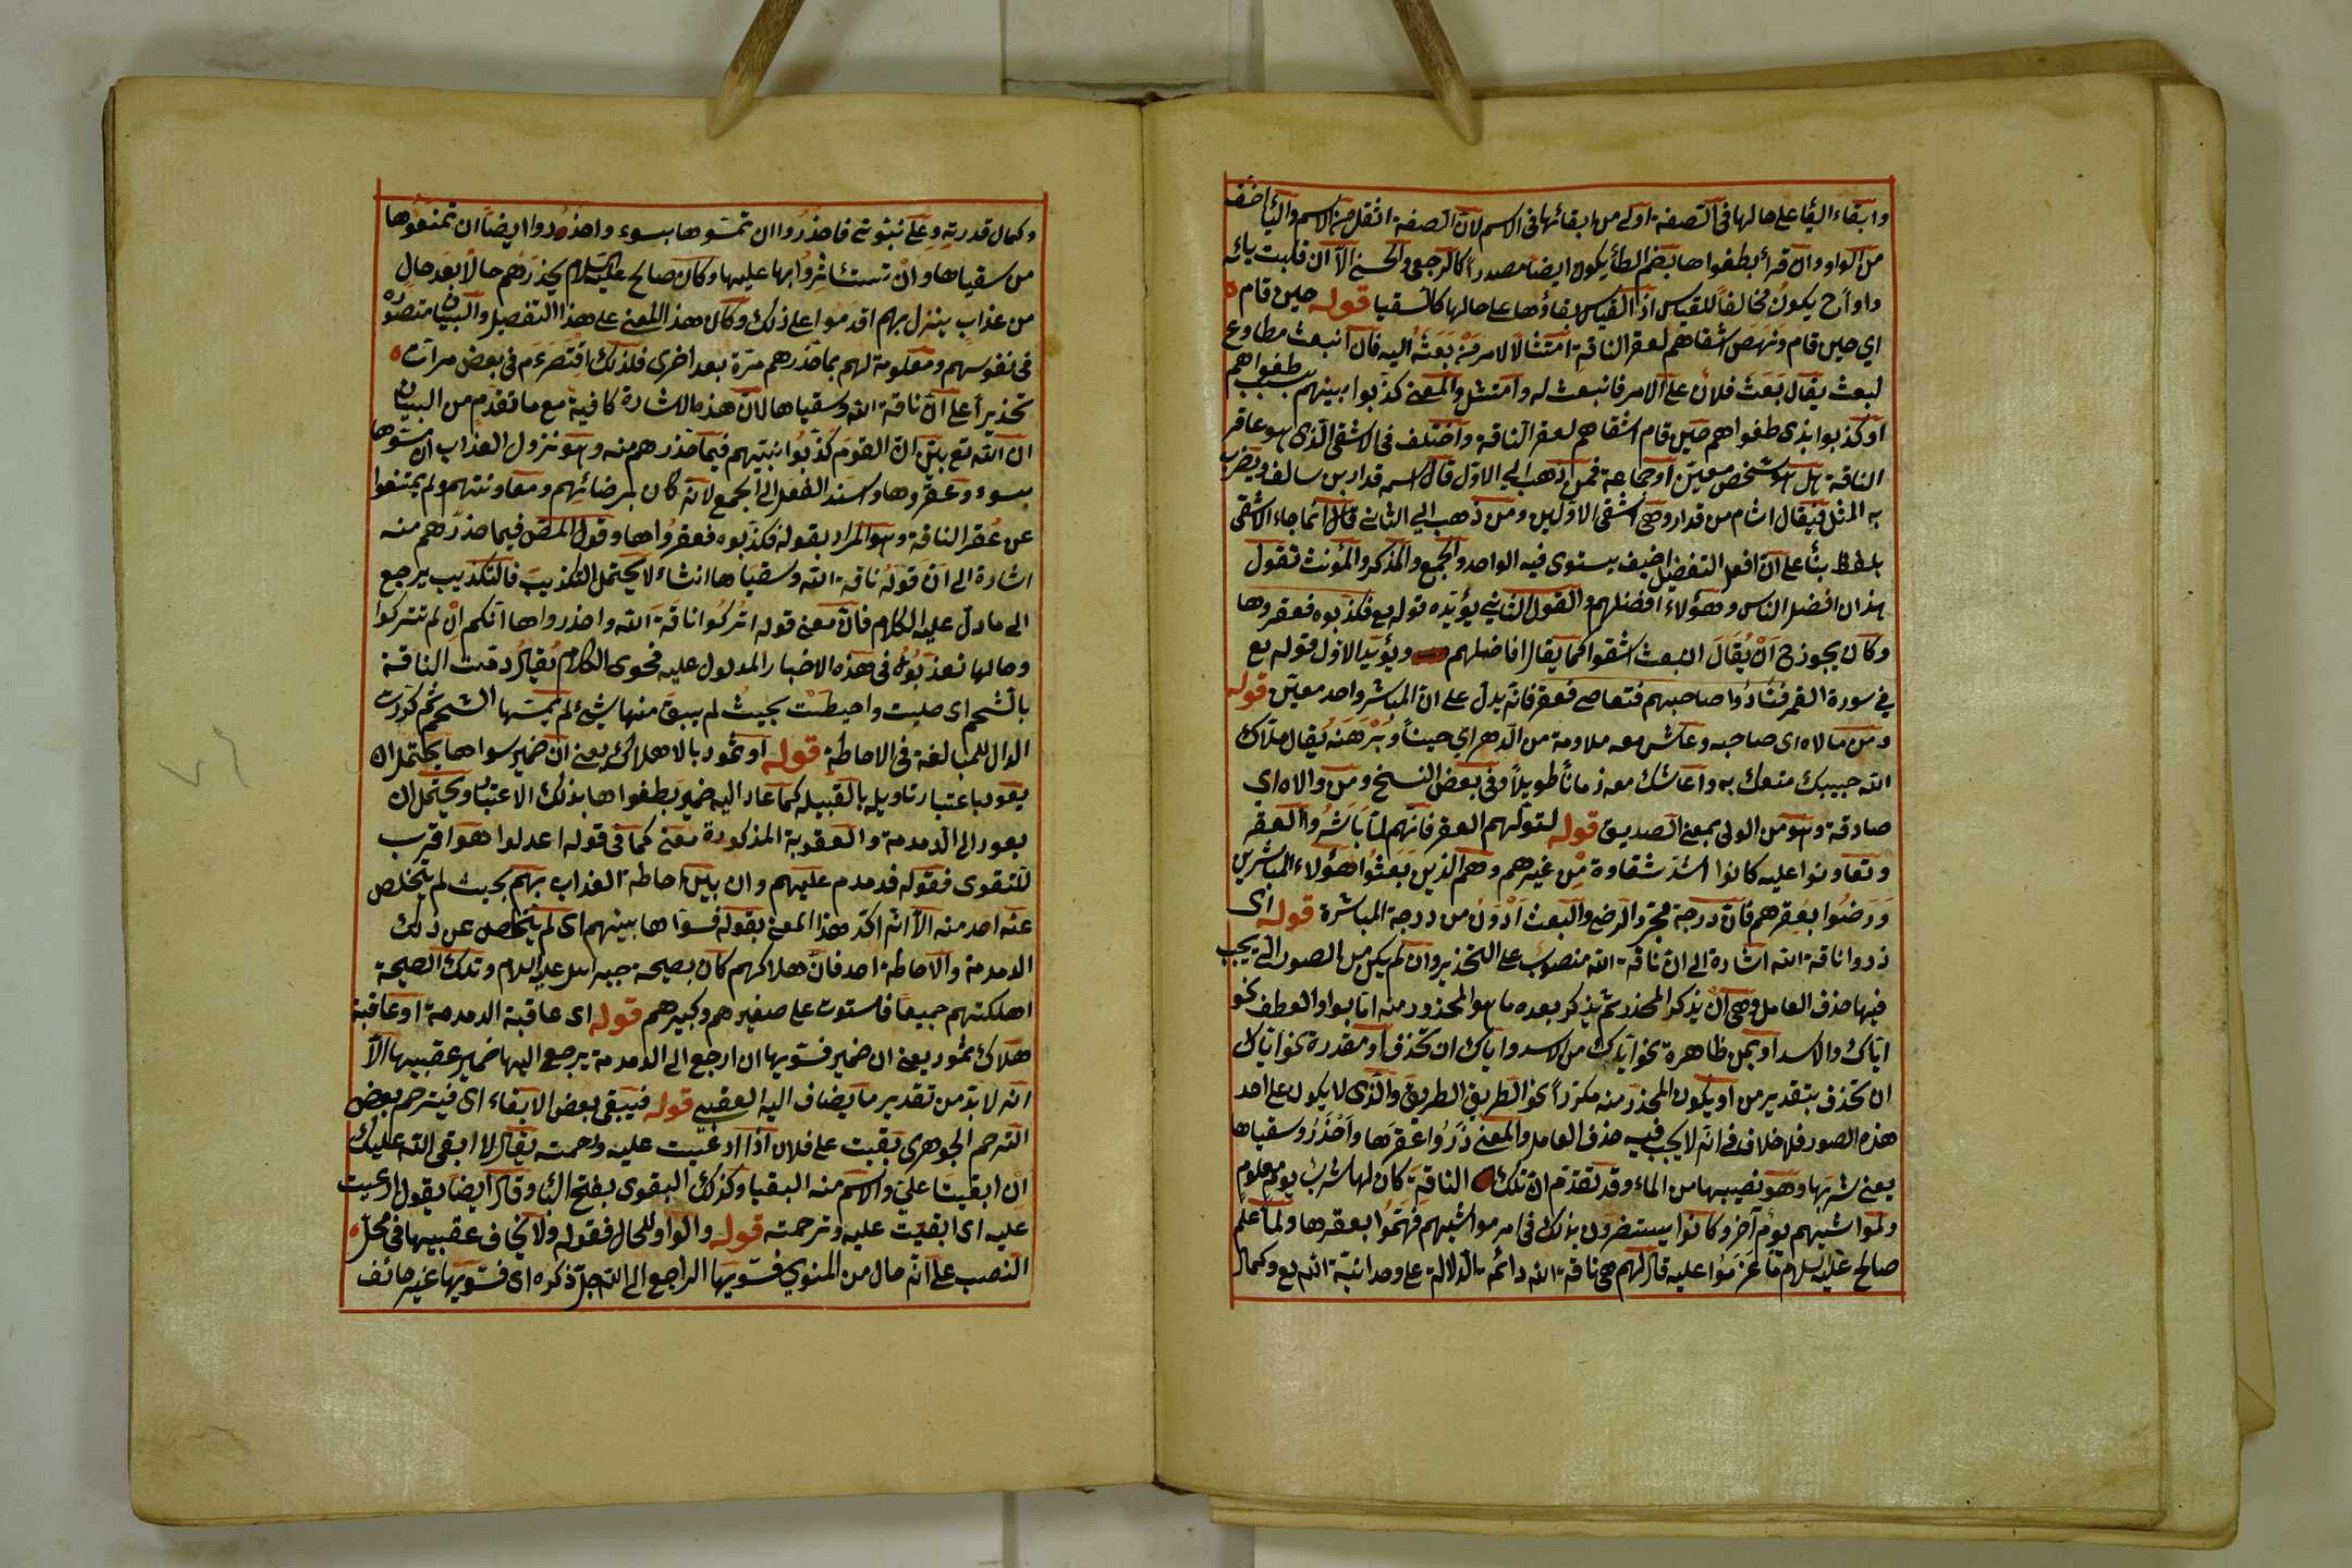 وابقاء الياء على حالها فى الصفة اولى من ابقائها فى الاسم لان الصفة اثقل من الاسم والياء اخف
من الواو وان قرأ بطغواها بضم الطاء يكون ايضا مصدرا كالرجعى والحسنى الا ان قلبت يائه
واوا ح يكون مخالفا للقياس اذ القياس بقاؤها على حالها كالسقيا قوله حين قام
اي حين قام ونهض اشقاهم لعقر الناقة امتثالا لامر من بعثه اليه فان انبعث مطاوع
لبعث يقال بعث فلان على الامر فانبعث له وامتثل والمعنى كذبوا نبيهم بسبب طغواهم
او كذبوا بذى طغواهم حين قام اشقاهم لعقر الناقة واختلف فى الاشقى الذى هو عاقر
الناقة هل هو شخص معين او جماعة فمن ذهب الى الاول قال اسمه قدار بن سالف ويضرب
به المثل فيقال اشام من قدار وهى اشقى الاولين ومن ذهب الى الثانى قال انما جاء الاشقى
بلفظ بناء على ان افعل التفضيل اضيف يستوى فيه الواحد والجمع والمذكر والمؤنث تقول
هذان افضل الناس وهؤلاء افضلهم والقول الثانى يؤيده قوله تع فكذبوه فعقروها
وكان يجوز ح ان يقال انبعث اشقوا كما يقال افاضلهم ويؤيد الاول قوله تع
في سورة القمر فنادوا صاحبهم فتعاطى فعقر فانه يدل على ان المباشر واحد معين قوله
ومن مالاه اى صاحبه وعاش معه ملاوة من الدهر اي حينا وبرهة يقال ملاك
الله حبيبك متعك به واعاشك معه زمانا طويلا وفى بعض النسخ ومن والاه اى
صادقه وهو من الولى بمعنى الصديق قوله لتوليهم العقر فانهم لما باشروا العقر
وتعاونوا عليه كانوا اشد شقاوة من غيرهم وهم الذين بعثوا هؤلاء المباشرين
ورضوا بعقرهم فان درجة مجرد الرضى والبعث ادون من درجة المباشرة قوله اى
ذروا ناقة الله اشارة الى ان ناقة الله منصوب على التحذير وان لم يكن من الصور التى يجب
فيها حذف العامل وهى ان يذكر المحذر ثم يذكر بعده ما هو المحذور منه اما بواو العطف نحو
اياك والاسد او بمن ظاهرة نحو اياك من الاسد واياك ان تحذف او مقدرة نحو اياك
ان تحذف بتقدير من او يكون المحذر منه مكررا نحو الطريق الطريق والذى لا يكون على احد
هذه الصور فلا خلاف فى انه لا يجب فيه حذف العامل والمعنى ذروا عقرها واحذروا سقياها
يعنى شربها وهو نصيبها من الماء وقد تقدم ان تلك الناقة كان لها شرب يوم معلوم
ولمواشيهم يوم آخر وكانوا يستضرون بذلك فى امر مواشيهم فهموا بعقرها ولما علم
صالح عليه السلام ما عزموا عليه قال لهم هى ناقة الله دائمة الدلالة على وحدانية الله تع وكمال
وكمال قدرته وعلى نبوتى فاحذروا ان تمسوها بسوء واحذروا ايضا ان تمنعوها
من سقياها وان تستأثروا بها عليها وكان صالح عليه السلام يحذرهم حالا بعد حال
من عذاب ينزل بهم اقدموا على ذلك وكان هذا المعنى على هذا التفصيل والبيان متصورة
فى نفوسهم ومعلومة لهم بما حذرهم مرة بعد اخرى فلذلك اقتصر عم فى بعض مرات
تحذيرا على ان ناقة الله وسقياها لان هذه الاشارة كافية مع ما تقدم من البيان
ان الله تع بين ان القوم كذبوا نبيهم فيما حذرهم منه وهو نزول العذاب ان مسوها
بسوء وعقروها واسند الفعل الى الجمع لانه كان برضائهم ومعاونتهم ولم يمتنعوا
عن عقر الناقة وهو المراد بقوله فكذبوه فعقروها وقول المص فيما حذرهم منه
اشارة الى ان قوله ناقة الله وسقياها انشاء لا يحتمل التكذيب فالتكذيب يرجع
الى ما دل عليه الكلام فان معنى قوله اتركوا ناقة الله واحذرواها انكم ان لم تتركوا
وحالها تعذبوا فى هذه الاخبار المدلول عليه فحوى الكلام يقال دمت الناقة
بالشحم اى صلبت واحيطت بحيث لم يبق منها شئ لم يمسها الشحم ثم كررت
الدال للمبالغة فى الاحاطة قوله او ثمود بالاهلاك يعنى ان ضمير سواها يحتمل ان
يعود باعتبار تاويله بالقبيلة كما عاد اليه ضمير بطغواها بذلك الاعتبار ويحتمل ان
يعود الى الدمدمة والعقوبة المذكورة معنى كما فى قوله اعدلوا هو اقرب
للتقوى فقوله فدمدم عليهم وان بين احاطة العذاب بهم بحيث لم يتخلص
عنه احد منه الا انه اكد هذا المعنى بقوله فسواها بينهم اى لم يتخلص عن ذلك
الدمدمة والاحاطة احد فان هلاكهم كان بصيحة جبرائيل عليه السلام وتلك الصيحة
اهلكتهم جميعا فاستوت على صغيرهم وكبيرهم قوله اى عاقبة الدمدمة او عاقبة
هلاك ثمود يعنى ان ضمير فسويها ان ارجع الى الدمدمة يرجع اليها ضمير عقبيها الا
انه لا بد من تقدير ما يضاف اليه العقبى قوله فيبقى بعض الابقاء اى فيترحم بعض
الترحم الجوهرى بقيت على فلان اذا ارعيت عليه ورحمته يقال لا ابقى الله عليك
ان ابقيت علي والاسم منه البقيا وكذلك البقوى بفتح الباء وقال ايضا يقول ارعيت
عليه اى ابقيت عليه وترحمته قوله والواو للحال فقوله ولا يخاف عقبيها فى محل
النصب على انه حال من المنوي فسويها الراجع الى الله جل ذكره اى فسويها غير خائف